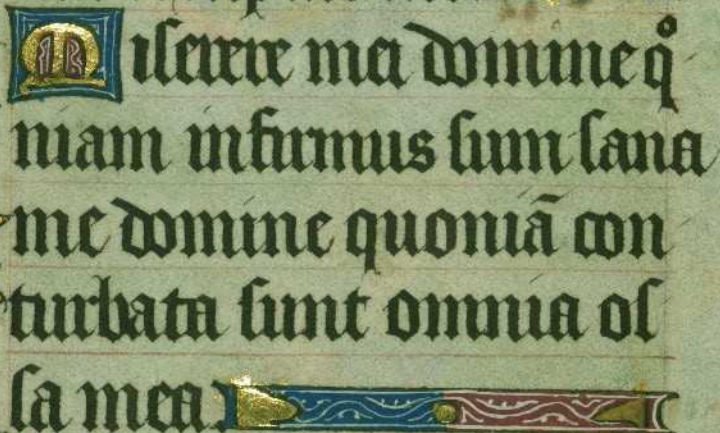 Miserere mei domine qͦ
niam infirmus sum sana
me domine quoniā con
turbata sunt omnia os
sa mea.